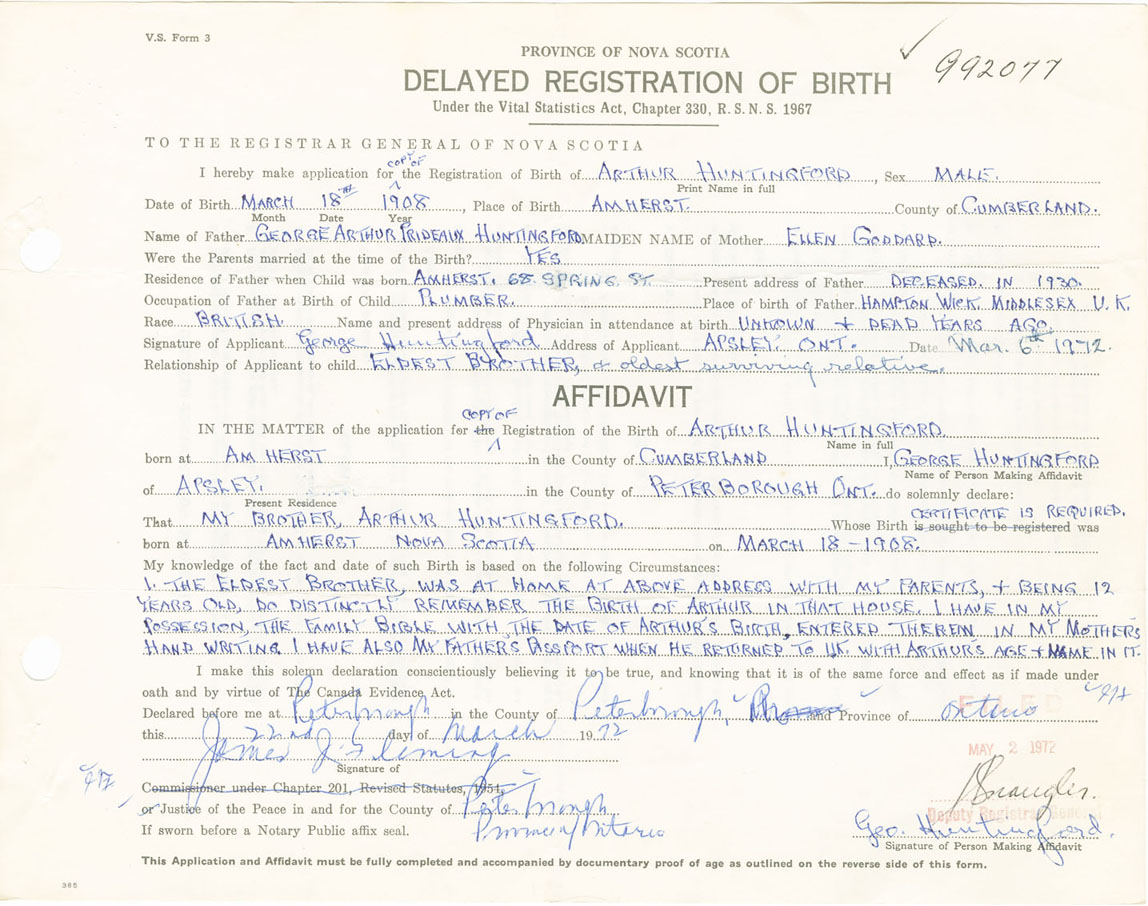 V.S. Form 3
PROVINCE OF NOVA SCOTIA
992077
DELAYED REGISTRATION OF BIRTH
Under the Vital Statistics Act, Chapter 330, R. S. N. S. 1967
TO THE REGISTRAR GENERAL OF NOVA SCOTIA
COPY OF
I hereby make application for the Registration of Birth of ARTHUR HUNTINGFORD, Sex MALE.
Print Name in full
Date of Birth MARCH 18TH 1908, Place of Birth AMHERST. County of CUMBERLAND.
Month Date Year
Name of Father GEORGE ARTHUR PRIDEAUX HUNTINGFORD MAIDEN NAME of Mother ELLEN GODDARD.
Were the Parents married at the time of the Birth? YES
Residence of Father when Child was born AMHERST. 68 SPRING ST. Present address of Father DECEASED. IN 1930.
Occupation of Father at Birth of Child PLUMBER. Place of birth of Father HAMPTON WICK. MIDDLESEX U.K.
Race BRITISH. Name and present address of Physician in attendance at birth UNKOWN + DEAD YEARS AGO.
Signature of Applicant George Huntingford Address of Applicant APSLEY. ONT. Date Mar. 6th 1972.
Relationship of Applicant to child ELDEST BROTHER, & oldest surviving relative.
AFFIDAVIT
COPY OF
IN THE MATTER of the application for the Registration of the Birth of ARTHUR HUNTINGFORD.
Name in full
born at AMHERST in the County of CUMBERLAND I, GEORGE HUNTINGFORD
Name of Person Making Affidavit
of APSLEY. in the County of PETERBOROUGH ONT. do solemnly declare:
Present Residence
CERTIFICATE IS REQUIRED.
That MY BROTHER, ARTHUR HUNTINGFORD. Whose Birth is sought to be registered was
born at AMHERST NOVA SCOTIA on MARCH 18-1908.
My knowledge of the fact and date of such Birth is based on the following Circumstances:
I. THE ELDEST BROTHER, WAS AT HOME AT ABOVE ADDRESS WITH MY PARENTS, + BEING 12
YEARS OLD, DO DISTINCTLY REMEMBER THE BIRTH OF ARTHUR IN THAT HOUSE. I HAVE IN MY
POSSESSION, THE FAMILY BIBLE WITH THE DATE OF ARTHUR'S BIRTH, ENTERED THEREIN IN MY MOTHERS
HAND WRITING I HAVE ALSO MY FATHER'S PASSPORT WHEN HE RETURNED TO U.K. WITH ARTHUR'S AGE + NAME IN IT.
I make this solemn declaration conscientiously believing it to be true, and knowing that it is of the same force and effect as if made under
oath and by virtue of The Canada Evidence Act.
Declared before me at Peterborough in the County of Peterborough, and Province of Ontario
FILED
this 22nd day of March 1972
James J. Fleming
MAY 2 1972
Signature of
Commissioner under Chapter 201, Revised Statutes, 1954,
or Justice of the Peace in and for the County of Peterborough
Deputy Registrar General
If sworn before a Notary Public affix seal. Province of Ontario
Geo. Huntingford.
Signature of Person Making Affidavit
This Application and Affidavit must be fully completed and accompanied by documentary proof of age as outlined on the reverse side of this form.
385